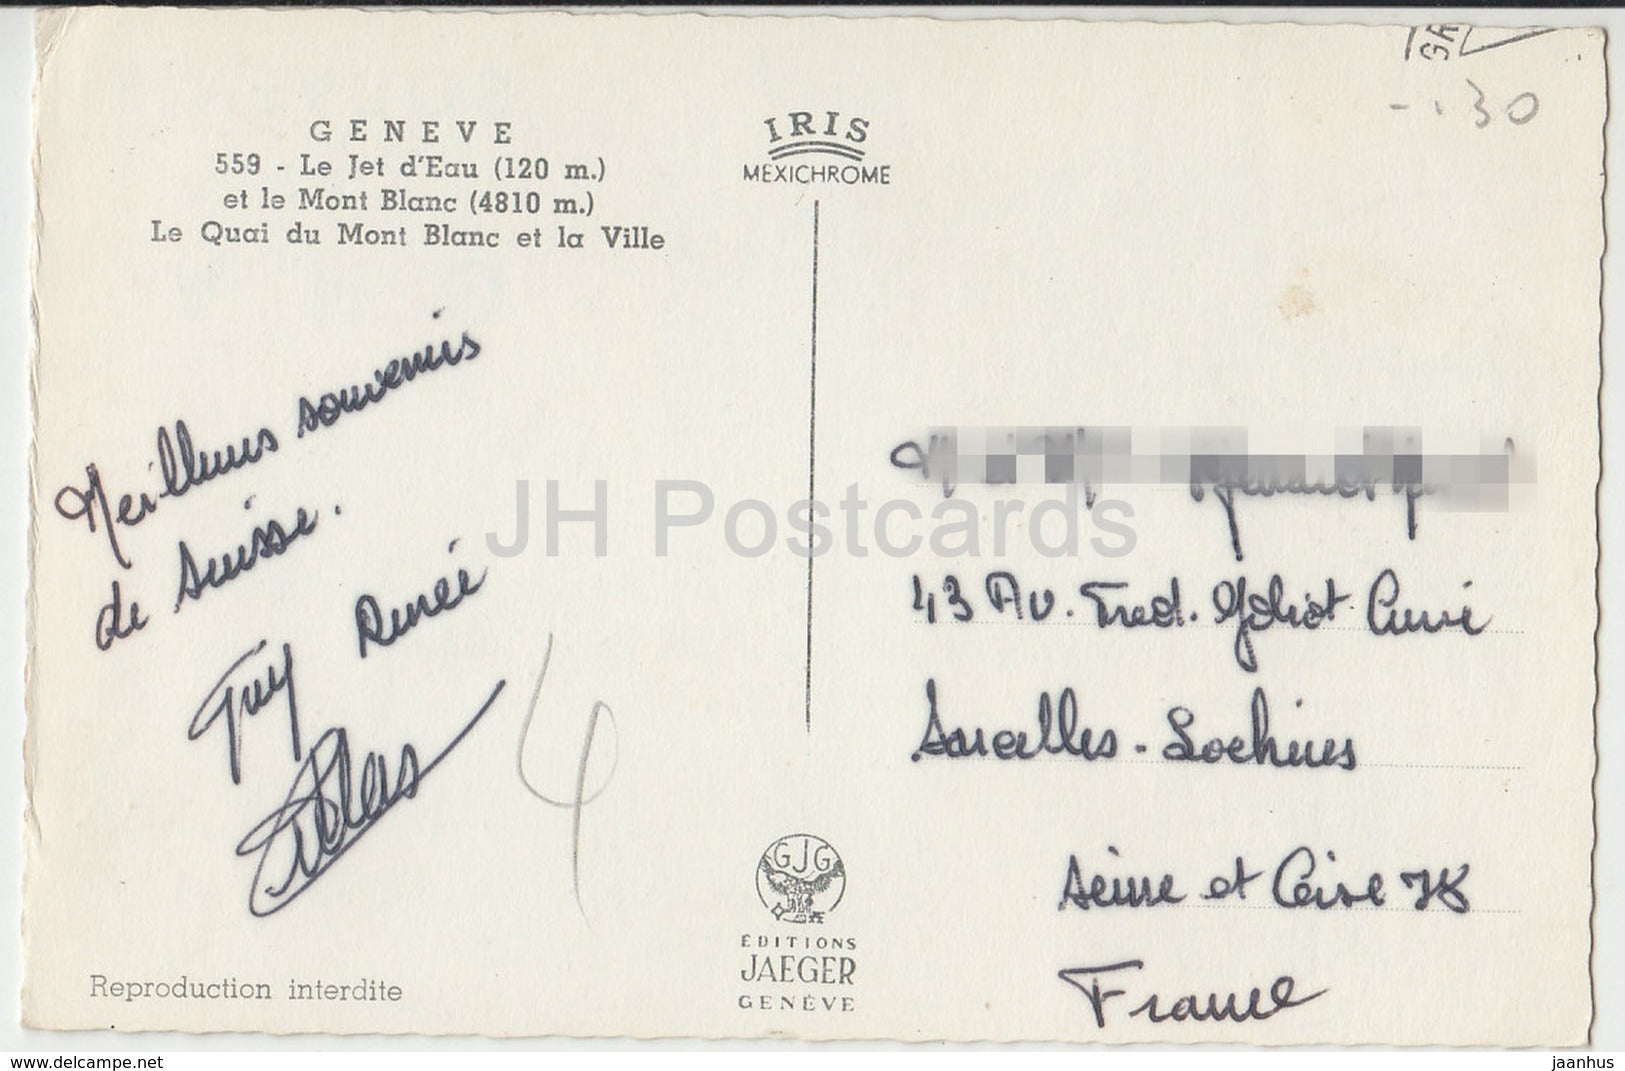 GENEVE
559 - Le Jet d'Eau (120 m.)
et le Mont Blanc (4810 m.)
Le Quai du Mont Blanc et la Ville
IRIS
MEXICHROME
GR
-.30
Meilleurs souvenirs
de Suisse.
Guy Renée
4
43 Av. Fred. Joliot Curie
Sarcelles - Lochères
Seine et Oise 78
France
GJG
ÉDITIONS
JAEGER
GENÈVE
Reproduction interdite
JH Postcards
www.delcampe.net
jaanhus